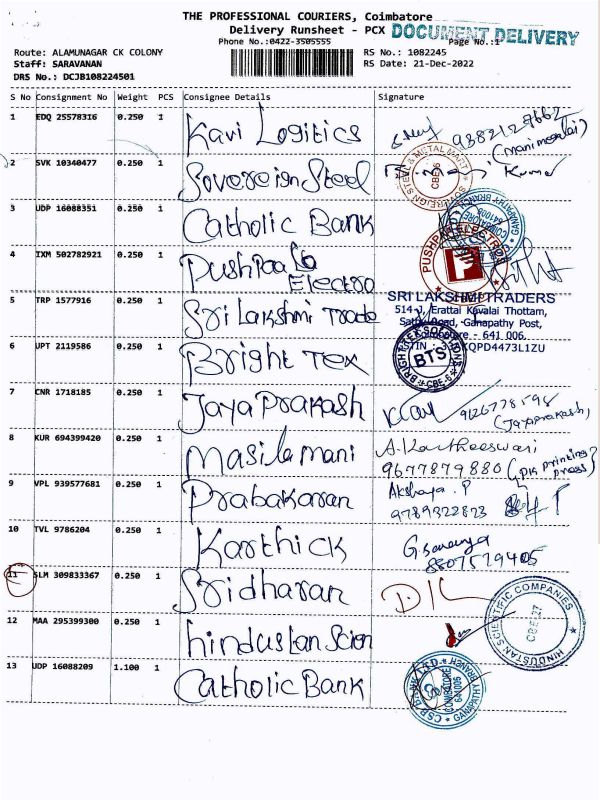 THE PROFESSIONAL COURIERS, Coimbatore
Delivery Runsheet - PCX DOCUMENT DELIVERY
Phone No.:0422-3505555 Page No.:1
Route: ALAMUNAGAR CK COLONY RS No.: 1082245
Staff: SARAVANAN RS Date: 21-Dec-2022
DRS No.: DCJB108224501
S No Consignment No Weight PCS Consignee Details Signature
1 EDQ 25578316 0.250 1 Kavi Logitics
(Manimegalai)
2 SVK 10340477 0.250 1 Sovereign Steel Kumar
SOVEREIGN STEEL & METAL MART CBE-6
3 UDP 16088351 0.250 1 Catholic Bank
COIMBATORE 641006 GANAPATHY BRANCH
4 IXM 502782921 0.250 1 Pushpaa
Electro
5 TRP 1577916 0.250 1 Sri Lakshmi Trade
SRI LAKSHMI TRADERS
514-J, Erattai Kovalai Thottam,
Ganapathy Post,
Coimbatore - 641 006.
6 UPT 2119586 0.250 1 Bright Tex
BTS CBE-6
7 CNR 1718185 0.250 1 Jaya Prakash
(Jayaprakash)
8 KUR 694399420 0.250 1 Masilamani A. Kartheeswari
9677879880 (printing
press)
9 VPL 939577681 0.250 1 Prabakaran Akshaya . P
9789322823
10 TVL 9786204 0.250 1 Karthick
8807529405
11 SLM 309833367 0.250 1 Sridharan
12 MAA 295399300 0.250 1 hindustan Scien
HINDUSTAN SCIENTIFIC COMPANIES CBE-27
13 UDP 16088209 1.100 1 Catholic Bank
CSB BANK LTD. COIMBATORE 641006 GANAPATHY BRANCH